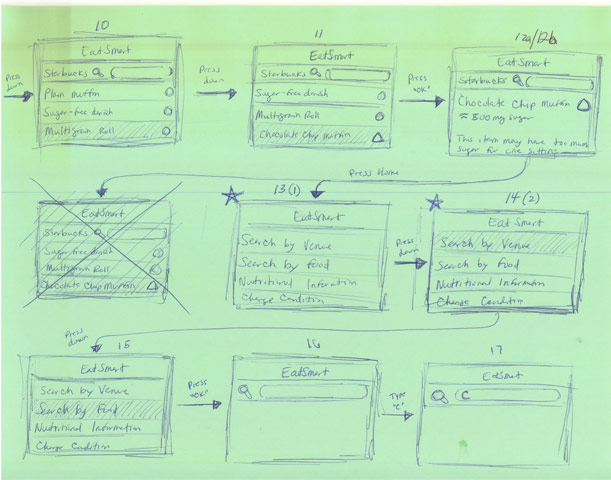 10
11
12a/12b
Press down
EatSmart
Starbucks
Plain muffin
Sugar-free danish
Multigrain Roll
Press down
EatSmart
Starbucks
Sugar-free danish
Multigrain Roll
Chocolate Chip Muffin
Press "OK"
EatSmart
Starbucks
Chocolate Chip Muffin
≈ 800 mg sugar
This item may have too much
sugar for one sitting
Press Home
EatSmart
Starbucks
Sugar-free danish
Multigrain Roll
Chocolate Chip Muffin
13 (1)
EatSmart
Search by Venue
Search by Food
Nutritional Information
Change Condition
Press down
14 (2)
EatSmart
Search by Venue
Search by Food
Nutritional Information
Change Condition
Press down
15
EatSmart
Search by Venue
Search by Food
Nutritional Information
Change Condition
Press "OK"
16
EatSmart
Type "C"
17
EatSmart
C